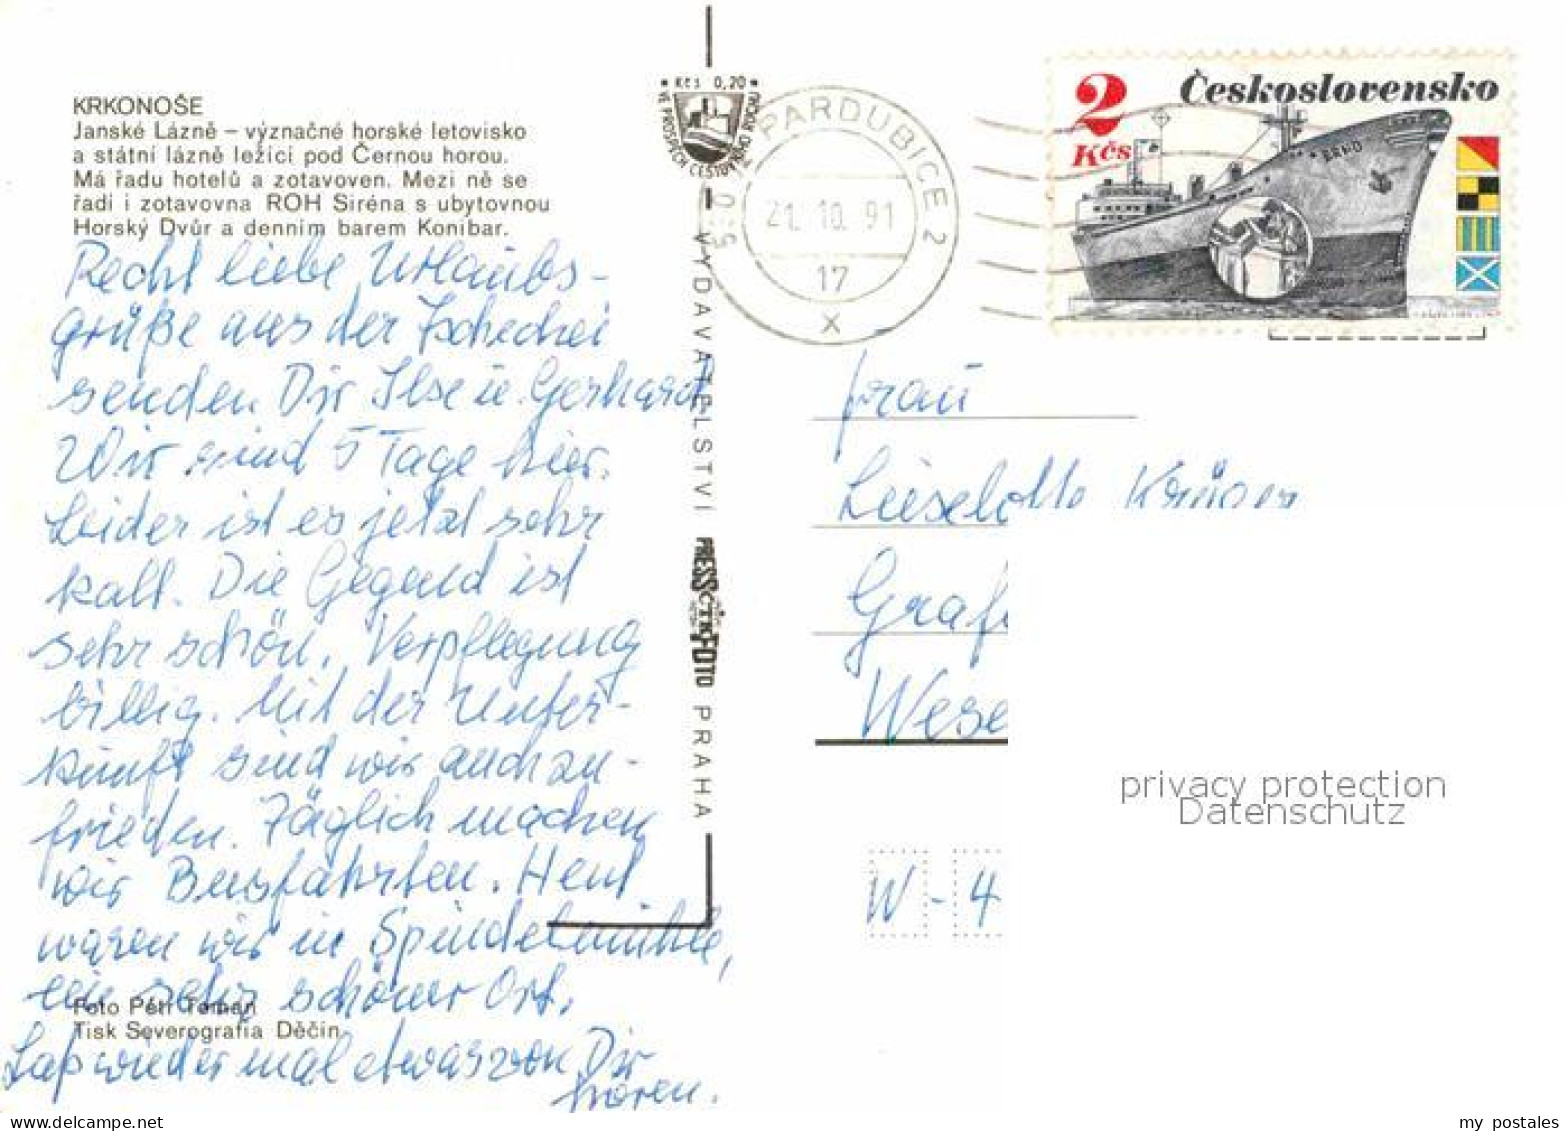 KRKONOŠE
Janské Lázně – význačné horské letovisko
a státní lázně ležící pod Černou horou.
Má řadu hotelů a zotavoven. Mezi ně se
řadí i zotavovna ROH Siréna s ubytovnou
Horský Dvůr a denním barem Konibar.
Recht liebe Urlaubs-
grüße aus der Tschechei
senden Dir Ilse u. Gerhard
Wir sind 5 Tage hier.
Leider ist es jetzt sehr
kalt. Die Gegend ist
sehr schön. Verpflegung
billig. Mit der Unter-
kunft sind wir auch zu-
frieden. Täglich machen
wir Busfahrten. Heut
waren wir in Spindelmühle,
ein sehr schöner Ort.
Laß wieder mal etwas von Dir
hören.
Foto Petr Toman
Tisk Severografia Děčín
Kčs 0,20
VE PROSPĚCH CESTOVNÍHO RUCHU
VYDAVATELSTVÍ PRESSFOTO PRAHA
ČTK
PARDUBICE 2
21.10.91
17
X
2
Kčs
Československo
BRNO
Frau
Lieselotte Krüger
Graf
Wese
W-4
privacy protection
Datenschutz
my postales